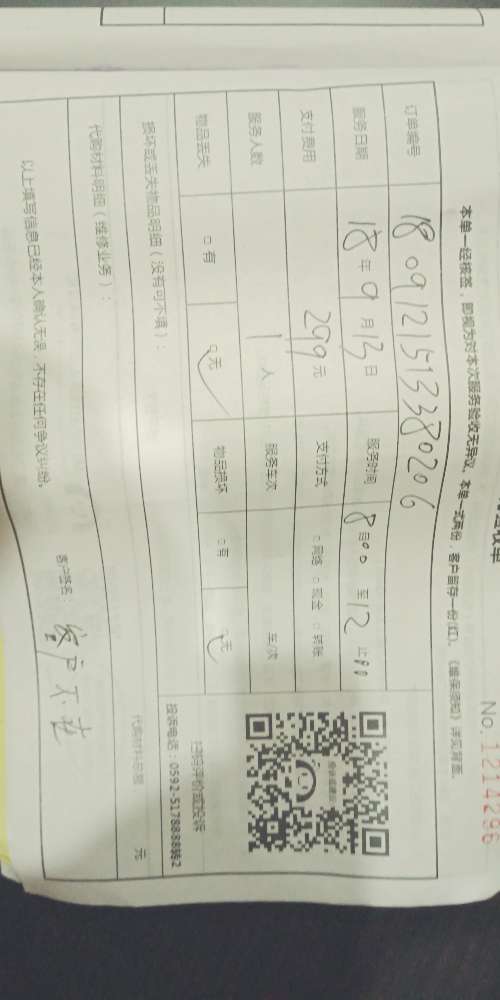 No. 1214296
本单一经核签，即视为对本次服务验收无异议。本单一式两份，客户留存一份(红)。《维保须知》详见背面。
订单编号 180912151338020 6
服务日期 18 年 9 月 13 日 服务时间 8 时00 至 12 止00
支付费用 299 元 支付方式 □ 网络 □ 现金 □ 转账
服务人数 1 人 服务车次 车/次
物品丢失 □ 有 □ 无 ✓ 物品损坏 □ 有 □ 无 ✓
损坏或丢失物品明细（没有可不填）：
扫码评价或投诉
投诉电话：0592-5178888转2
代购材料明细（维修业务）：
代购材料总额 元
以上填写信息已经本人确认无误，不存在任何争议纠纷。
客户签名： 客户不在